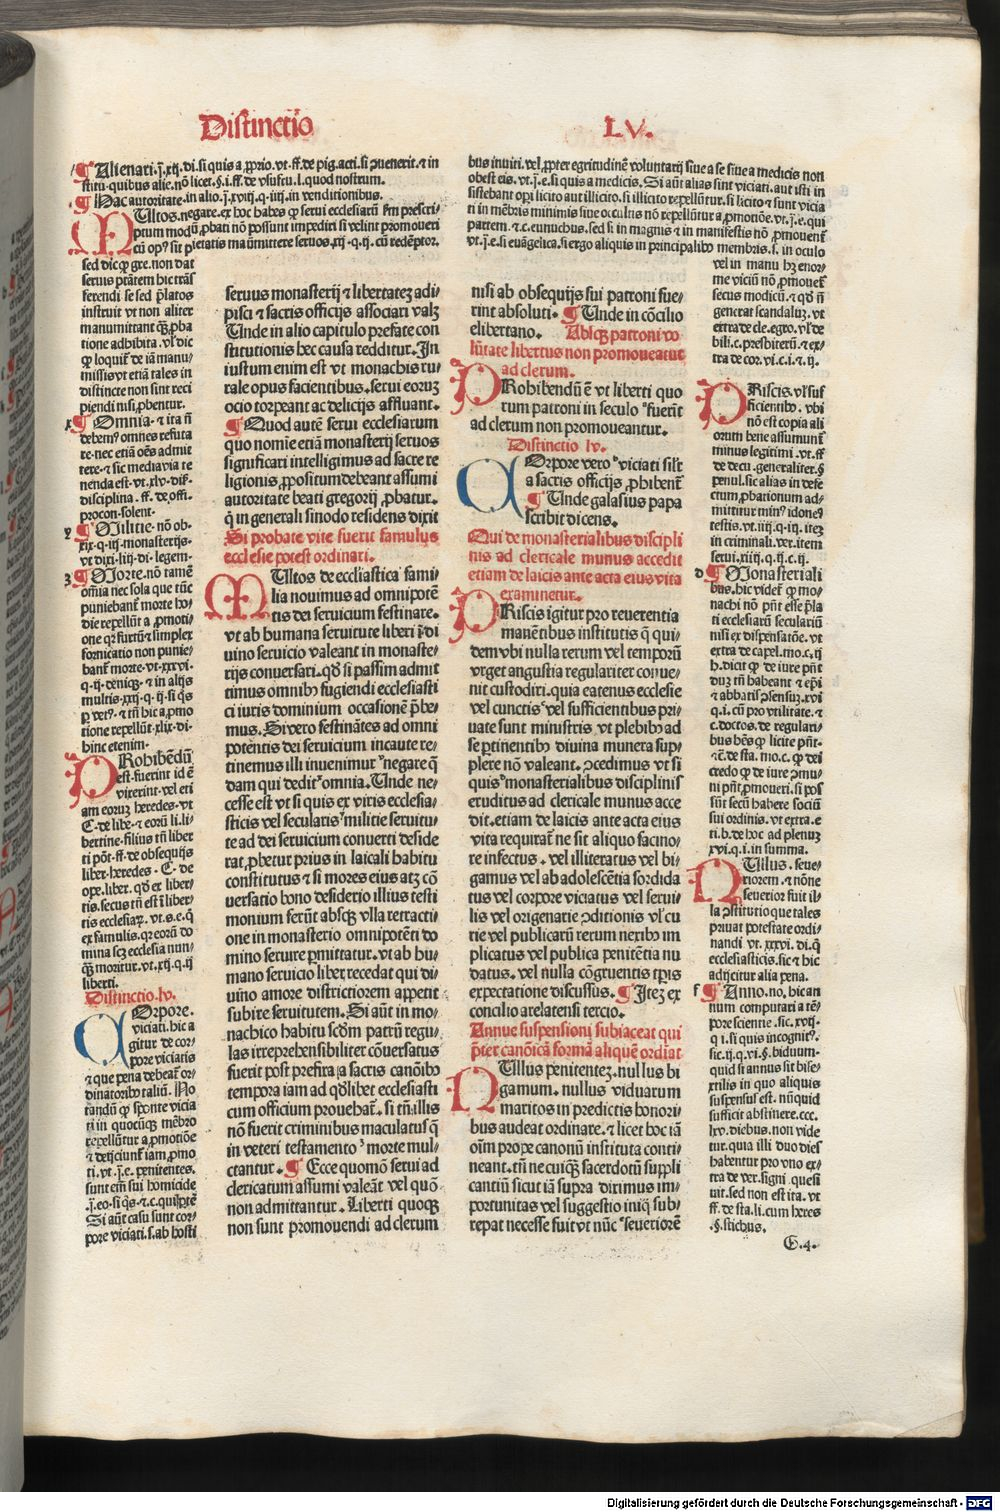 Distinctio
LV.
¶ Alienari.j̄.xij.di.si quis a ꝓprio.vt.ff.de pig.acti.si ꝯuenerit.⁊ in
stitu.quibus alie.nō licet.§.i.ff.de vsufru.l.quod nostrum.
¶ Hac autoritate.in alio.j̄.xviij.q.iiij.in venditionibus.
MUltos.negare.ex hoc habes ꝙ serui ecclesiarum scḋm prescri-
ptum modū ꝓbati nō possunt impediri si velint promoueri
sed dic ꝙ gre.non dat
seruis ptātem hic trās
ferendi se sed p̄latos
instruit vt non aliter
manumittant
tione adhibita.vl̓ dic
ꝙ loquit̄ de iā manu-
missis vt etiā tales in
distincte non sint reci
piendi nisi ꝓbentur.
¶ Omnia.⁊ ita n̄
omnes refuta
re.nec etiā oēs admit
tere.⁊ sic media via te
nenda est.vt.xlv.dis̄.
disciplina.ff.de offi.
procon.solent.
¶ Milicie.nō ob-
xix.q.iij.monasterijs.
vt dixi.liij.di.legem.
¶ Morte.nō tamē
omīa nec sola que tūc
puniebant̄ morte ho-
die repellūt a ꝓmoti-
one qr furtū ⁊ simplex
fornicatio non punie-
bant̄ morte.vt.xxxvi.
q.ij.deniqꝫ.⁊ in alijs
multis.xxij.q.ij.si qͥs
tione repellūt.xlix.di-
hinc etenim.
PRohibēdū
est.fuerint id ē
vixerint.vel eti
am eoruꝫ heredes.vt
C.de libe.⁊ eorū li.li-
bertine.filius tn̄ liber
ti pōt.ff.de obsequijs
liber.heredes.C.de
ope.liber.qd̓ ex liber-
tis.secus tn̄ est ī liber-
tis ecclesiaꝝ.vt.s.e.q̄
ex famulis.qr eorū do
mina scꝫ ecclesia nun-
qꝫ moritur.vt.xij.q.ij
liberti.
Distinctio.lv.
COrpore.
viciati.hic a
gitur de cor-
pore viciatis
⁊ que pena debeat̄ or-
dinatoribꝰ taliū.No
tandū ꝙ sponte vicia
ti in quocūqꝫ mēbro
repellūtur a ꝓmotiōe
⁊ deijciunt̄ iam ꝓmo
ti.vt.j̄.e.penitentes.
sunt em̄ sui homicide
Si aūt casu sunt cor-
pore viciati.s.ab hosti
seruus monasterij ⁊ libertateꝫ adi-
pisci ⁊ sacris officijs associari valꝫ
Unde in alio capitulo prefate con
stitutionis hec causa redditur.In
iustum enim est vt monachis ru-
rale opus facientibus.serui eoruꝫ
ocio torpeant ac delicijs affluant.
¶ Quod autē serui ecclesiarum
quo nomīe etiā monasterij seruos
significari intelligimus ad sacre re
ligionis ꝓpositum debeant assumi
autoritate beati gregorij ꝓbatur.
q̄ in generali sinodo residens dixit
Si probate vite fuerit famulus
ecclesie potest ordinari.
MUltos de eccliastica fami-
lia nouimus ad omnipotē
tis dei seruicium festinare.
vt ab humana seruitute liberi ī di
uino seruicio valeant in monaste-
rijs conuersari.qd̓ si passim admit
timus omnibꝰ fugiendi ecclesiasti
ci iuris dominium occasionē p̄be-
mus.Si vero festinātes ad omni
potentis dei seruicium incaute re-
tinemus illi inuenimur negare q̄
dam qui dedit omnia.Unde ne-
cesse est vt si quis ex viris ecclesia-
sticis vel secularis milicie seruitu-
te ad dei seruicium conuerti deside
rat ꝓbetur prius in laicali habitu
constitutus ⁊ si mores eius atꝫ cō
uersatio bono desiderio illius testi
monium ferūt absqꝫ vlla retracti-
one in monasterio omnipotēti do
mino seruire ꝑmittatur.vt ab hu-
mano seruicio liber recedat qui di-
uino amore districtiorem appetit
subire seruitutem.Si aūt in mo-
nachico habitu scd̓m patrū regu-
las irreprehensibiliter cōuersatus
fuerit post prefixa a sacris canōibꝰ
tempora iam ad qd̓libet ecclesiasti
cum officium prouehat̄.si tn̄ illis
nō fuerit criminibus maculatus q̄
in veteri testamento morte mul-
ctantur. ¶ Ecce quomō serui ad
clericatum assumi valeāt vel quō
non admittantur.Liberti quoqꝫ
non sunt promouendi ad clerum
bus inuiti.vel ꝓpter egritudinē voluntarij siue a se siue a medicis non
obest eis.vt.j̄.e.si quis a medicis.Si aūt alias sint viciati.aut isti in
sistebant operi licito aut illicito.si illicito repellūtur.si licito ⁊ sunt vicia
ti in mēbris minimis siue occultis nō repellūtur a ꝓmotiōe.vt.j̄.e.qui
partem.⁊.c.eunuchus.sed si in magnis ⁊ in manifestis nō ꝓmouent̄
vt.j̄.e.si euāgelica.si ergo aliquis in principalibꝰ membris.s.in oculo
nisi ab obsequijs sui patroni fue-
rint absoluti. ¶ Unde in cōcilio
elibertano. Absqꝫ patroni vo
lūtate libertus non promoueatur
ad clerum.
PRohibendū ē vt liberti quo
rum patroni in seculo fuerīt
ad clerum non promoueantur.
Distinctio lv.
COrpore vero viciati silr̄
a sacris officijs ꝓhibent̄
¶ Unde galasius papa
scribit dicens.
Qui de monasterialibus discipli
nis ad clericale munus accedit
etiam de laicis ante acta eius vita
examinetur.
PRiscis igitur pro reuerentia
manētibus institutis q̄ qui-
dem vbi nulla rerum vel temporū
vrget angustia regulariter conue-
nit custodiri.quia eatenus ecclesie
vel cunctis vel sufficientibus pri-
uate sunt ministris vt plebibꝰ ad
se ꝑtinentibꝰ divina munera sup-
plere nō valeant.ꝯcedimus vt si
quis monasterialibus disciplinis
eruditus ad clericale munus acce
dit.etiam de laicis ante acta eius
vita requirat̄ ne sit aliquo facino-
re infectus.vel illiteratus vel bi-
gamus vel ab adolescētia sordida
tus vel corpore viciatus vel serui-
lis vel origenarie ꝯditionis vl̓ cu
rie vel publicarū rerum nexibꝰ im
plicatus vel publica penitētia nu
datus.vel nulla cōgruentis tꝑis
expectatione discussus. ¶ Iteꝫ ex
concilio arelatensi tercio.
Annue suspensioni subiaceat qui
p̄ter canōicā formā aliquē ordīat
NUllus penitenteꝫ.nullus bi
gamum.nullus viduarum
maritos in predictis honori-
bus audeat ordinare.⁊ licet hoc iā
oīm prope canonū instituta conti-
neant.tn̄ ne cuiqꝫ sacerdotū suppli
cantiū sicut iā supra diximus im-
portunitas vel suggestio iniq̄ sub-
repat necesse fuit vt nūc seueriorē
vel in manu hꝫ enor-
me viciū nō ꝓmouet̄
secus modicū.⁊ qd̓ n̄
generat scandaluꝫ.vt
extra de cle.egro.vl̓ de
bili.c.presbiterū.⁊ ex-
tra de cor.vi.c.i.⁊ ij.
PRiscis.vl̓ suf
ficientibꝰ.vbi
nō est copia ali
orum bene assumunt̄
minus legitimi.vt.ff
de decu.generaliter.§
penul.sic alias in defe
ctum ꝓbationum ad-
mittitur minꝰ idoneꝰ
testis.vt.iiij.q.iij.iteꝫ
in criminali.ver.item
serui.xiiij.q.ij.c.ij.
¶ Monasteriali
bus.hic videt̄ ꝙ mo-
nachi nō pn̄t esse p̄la
ti ecclesiarū seculariū
nisi ex dispensatōe.vt
extra de capel.mo.c.ij
h.dicit ꝙ de iure pn̄t
duꝫ tn̄ habeant ⁊ ep̄i
⁊ abbatis ꝯsensuꝫ.xvi
q.i.cū pro vtilitate.⁊
c.doctos.de regulari-
bus hēs ꝙ licite pn̄t.
⁊ ē.de sta.mo.c.ꝙ dei
credo ꝙ de iure ꝯmu-
ni pn̄t ꝓmoueri.si pos
sunt secū habere sociū
sui ordinis.vt extra.e
ti.h.de hoc ad plenuꝫ
xvi.q.i.in summa.
NUllus.seue-
riorem.⁊ nōne
seuerior fuit il-
la ꝯstitutio que tales
priuat potestate ordi-
nandi vt.xxxvi.di.q̄
ecclesiasticis.sic ⁊ hic
adijcitur alia pena.
¶ Anno.no.hic an
num computari a tē-
pore scientie.sic.xvij.
q.i.si quis incognitꝰ.
sic.ij.q.vi.§.biduum.
quid si annus sit bise-
xtilis in quo aliquis
suspensus est.nūquid
sufficit abstinere.ccc.
lxv.diebus.non vide
tur.quia illi duo dies
habentur pro vno ex-
tra de ver.signi quesi
uit.sed non est ita.vt
ff.de sta.li.cum heres
.§.stichus.
E.4.
Digitalisierung gefördert durch die Deutsche Forschungsgemeinschaft - DFG